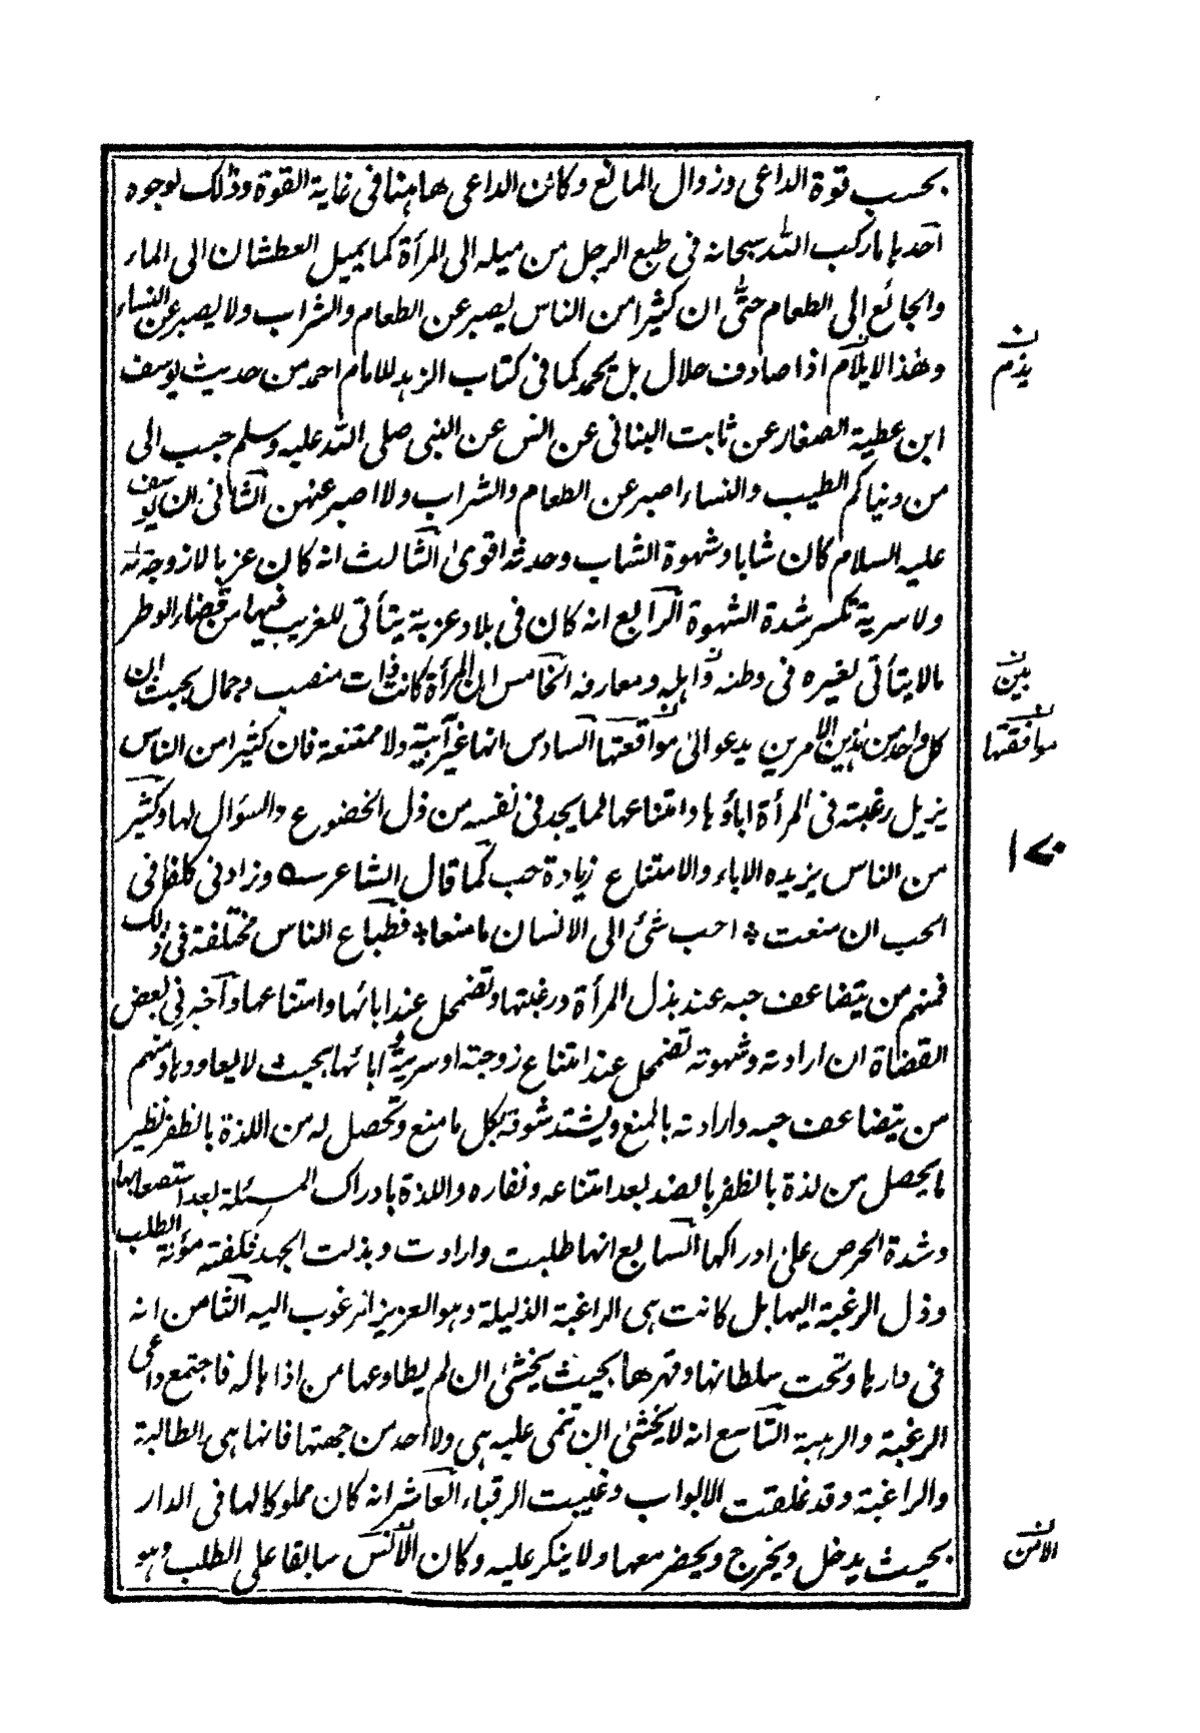 بحسب قوة الداعى وزوال المانع وكان الداعى هاهنا فى غاية القوة وذلك لوجوه
احدها ماركب الله سبحانه فى طبع الرجل من ميله الى المرأة كما يميل العطشان الى الماء
والجائع الى الطعام حتى ان كثيرا من الناس يصبر عن الطعام والشراب ولا يصبر عن النساء
وهذا لا يلام اذا صادف حلال بل يحمد كما فى كتاب الزهد للامام احمد من حديث يوسف
يذم
ابن عطية الصفار عن ثابت البنانى عن انس عن النبى صلى الله عليه وسلم حبب الى
من دنياكم الطيب والنساء اصبر عن الطعام والشراب ولا اصبر عنهن الثانى ان يوسف
عليه السلام كان شابا وشهوة الشاب وحدته اقوى الثالث انه كان عزبا لا زوجة له
ولا سرية تكسر شدة الشهوة الرابع انه كان فى بلاد غربة يتأتى للغريب فيها من قضاء الوطر
مالا يتأتى لغيره فى وطنه واهله ومعارفه الخامس ان المرأة كانت ذات منصب وجمال بحيث ان
بين
كل واحد من هذين الامرين يدعو الى مواقعتها السادس انها غير آبية ولا ممتنعة فان كثيرا من الناس
موافقتها
يزيل رغبته فى المرأة اباؤها وامتناعها لما يجد فى نفسه من ذل الخضوع والسؤال لها وكثير
١٧٠
من الناس يزيده الاباء والامتناع زيادة حب كما قال الشاعر وزادنى كلفا فى
الحب ان منعت * احب شئ الى الانسان ما منعا * فطباع الناس مختلفة فى ذلك
فمنهم من يتضاعف حبه عند بذل المرأة ورغبتها وتضمحل عند ابائها وامتناعها واخبرنى بعض
القضاة ان ارادته وشهوته تضمحل عند امتناع زوجته او سريته وابائها بحيث لا يعاودها ومنهم
من يتضاعف حبه وارادته بالمنع ويشتد شوقه بكل ما منع وتحصل له من اللذة بالظفر نظير
ما يحصل من لذة بالظفر بالصد بعد امتناعه ونفاره واللذة بادراك المسئلة بعد استصعابها
وشدة الحرص على ادراكها السابع انها طلبت وارادت وبذلت الجهد فكفته مؤنة الطلب
وذل الرغبة اليها بل كانت هى الراغبة الذليلة وهو العزيز المرغوب اليه الثامن انه
فى دارها وتحت سلطانها وقهرها بحيث يخشى ان لم يطاوعها من اذاها له فاجتمع داعى
الرغبة والرهبة التاسع انه لا يخشى ان تنمى عليه هى ولا احد من جهتها فانها هى الطالبة
والراغبة وقد غلقت الابواب وغيبت الرقباء العاشر انه كان مملوكا لها فى الدار
بحيث يدخل ويخرج ويحضر معها ولا ينكر عليه وكان الانس سابقا على الطلب وهو
الامن